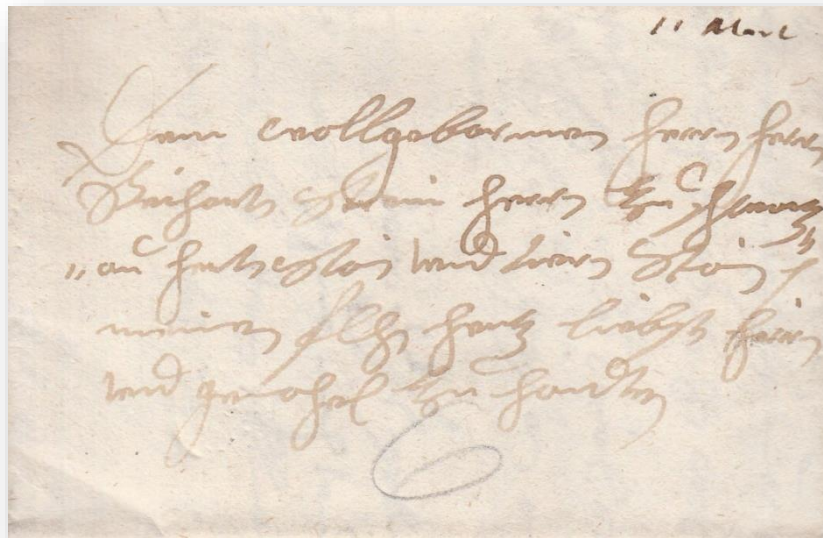 Dem wollgebornnen herrn herrn
Reichartn Strein herrn zu Schwartz
au hertnestain und tiern Stain
meinem hertz liebstn herrn
und gemahel zu handen